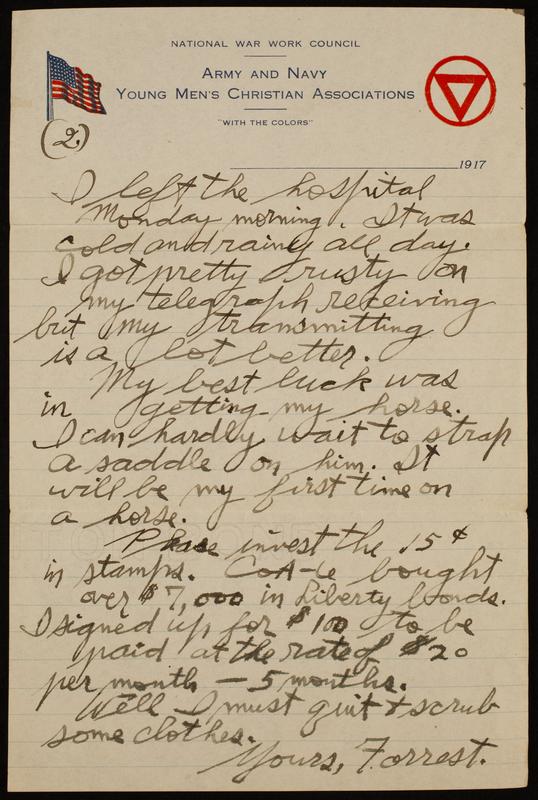 NATIONAL WAR WORK COUNCIL
ARMY AND NAVY
YOUNG MEN'S CHRISTIAN ASSOCIATIONS
"WITH THE COLORS"
(2.)
1917
I left the hospital
Monday morning. It was
cold and rainy all day.
I got pretty rusty on
my telegraph receiving
but my transmitting
is a lot better.
My best luck was
in getting my horse.
I can hardly wait to strap
a saddle on him. It
will be my first time on
a horse.
Please invest the 15¢
in stamps. bought
over $7,000 in Liberty bonds.
I signed up for $100 to be
paid at the rate of $20
per month – 5 months.
Well I must quit & scrub
some clothes.
Yours, Forrest.